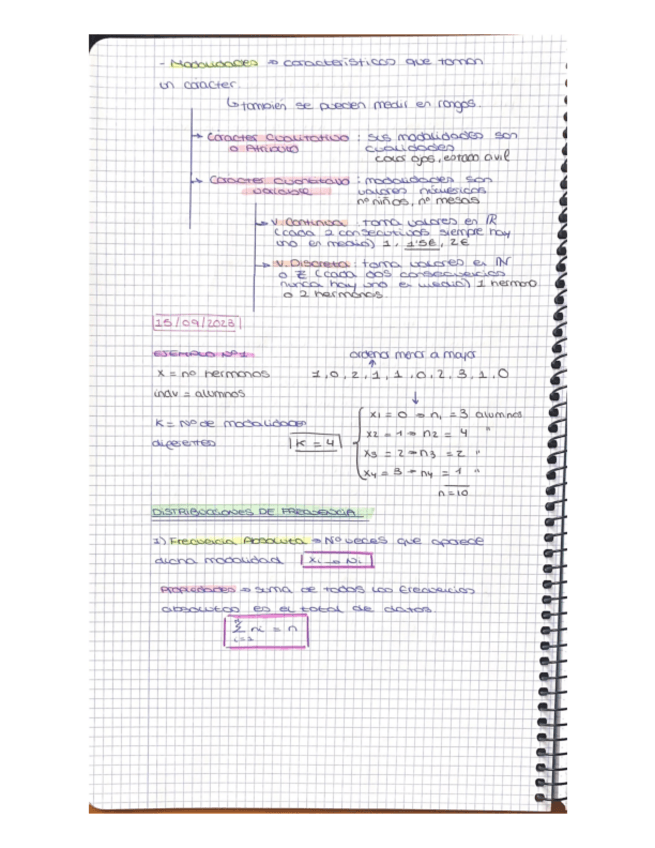 - Modalidades → características que toman
un carácter.
↳ también se pueden medir en rangos.
→ Carácter Cualitativo : sus modalidades son
o Atributo cualidades
color ojos, estado civil
→ Carácter Cuantitativo : modalidades son
variable valores númericos
nº niños, nº mesas
→ V. Continua : toma valores en ℝ
(cada 2 consecutivos siempre hay
uno en medio) 1, 1'5€, 2€
→ V. Discreta : toma valores en ℕ
o ℤ (cada dos consecuencios
nunca hay uno en medio) 1 hermano
o 2 hermanos.
15/09/2023
EJEMPLO Nº1 ordena menor a mayor
x = no hermanos 1, 0, 2, 1, 1, 0, 2, 3, 1, 0
indv = alumnos
K = Nº de modalidades
diferentes K = 4
x1 = 0 → n1 = 3 alumnos
x2 = 1 → n2 = 4 "
x3 = 2 → n3 = 2 "
x4 = 3 → n4 = 1 "
n = 10
DISTRIBUCIONES DE FRECUENCIA
1) Frecuencia Absoluta → Nº veces que aparece
dicha modalidad xi → Ni
Propiedades → suma de todos las frecuencias
absolutas es el total de datos
Σ ni = n